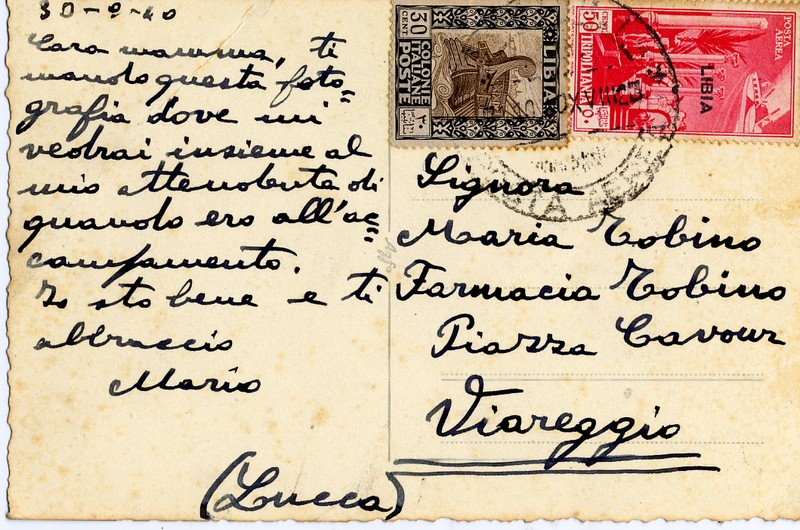 30-9-40
Cara mamma, ti
mando questa foto=
grafia dove mi
vedrai insieme al
mio attendente di
quando ero all'ac=
campamento.
Io sto bene e ti
abbraccio
Mario
30
CENT
COLONIE
ITALIANE
POSTE
LIBIA
50
CENT
POSTA
AEREA
TRIPOLITANIA
LIBIA
POSTA AEREA
Signora
Maria Tobino
Farmacia Tobino
Piazza Cavour
Viareggio
(Lucca)